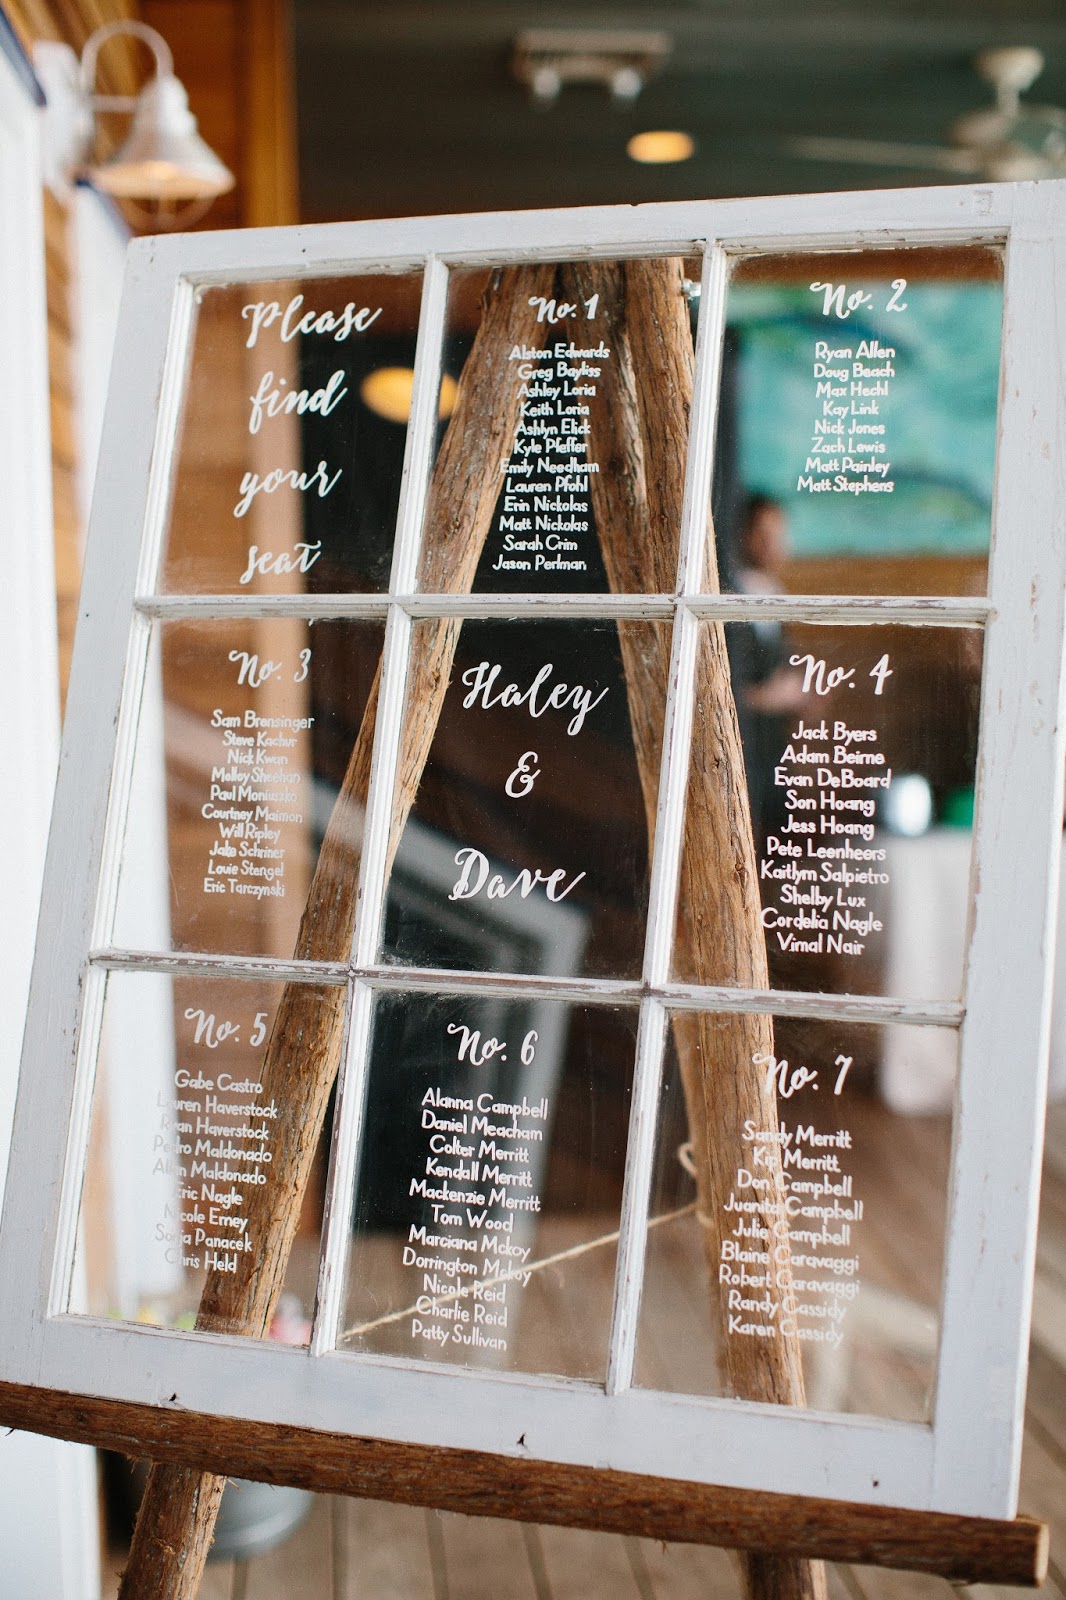 Please
find
your
seat
No. 1
Alston Edwards
Greg Bayliss
Ashley Loria
Keith Loria
Ashlyn Elick
Kyle Pfeffer
Emily Needham
Lauren Pfohl
Erin Nickolas
Matt Nickolas
Sarah Crim
Jason Perlman
No. 2
Ryan Allen
Doug Beach
Max Hechl
Kay Link
Nick Jones
Zach Lewis
Matt Painley
Matt Stephens
No. 3
Sam Brensinger
Steve Kachur
Nick Kwan
Molley Sheehan
Paul Moniuszko
Courtney Maimon
Will Ripley
Jake Schriner
Louie Stengel
Eric Tarczynski
Haley
&
Dave
No. 4
Jack Byers
Adam Beirne
Evan DeBoard
Son Hoang
Jess Hoang
Pete Leenheers
Kaitlym Salpietro
Shelby Lux
Cordelia Nagle
Vimal Nair
No. 5
Gabe Castro
Lauren Haverstock
Ryan Haverstock
Pedro Maldonado
Allen Maldonado
Eric Nagle
Nicole Erney
Sonja Panacek
Chris Held
No. 6
Alanna Campbell
Daniel Meacham
Colter Merritt
Kendall Merritt
Mackenzie Merritt
Tom Wood
Marciana Mckoy
Dorrington Mckoy
Nicole Reid
Charlie Reid
Patty Sullivan
No. 7
Sandy Merritt
Kip Merritt
Don Campbell
Juanita Campbell
Julie Campbell
Blaine Caravaggi
Robert Caravaggi
Randy Cassidy
Karen Cassidy